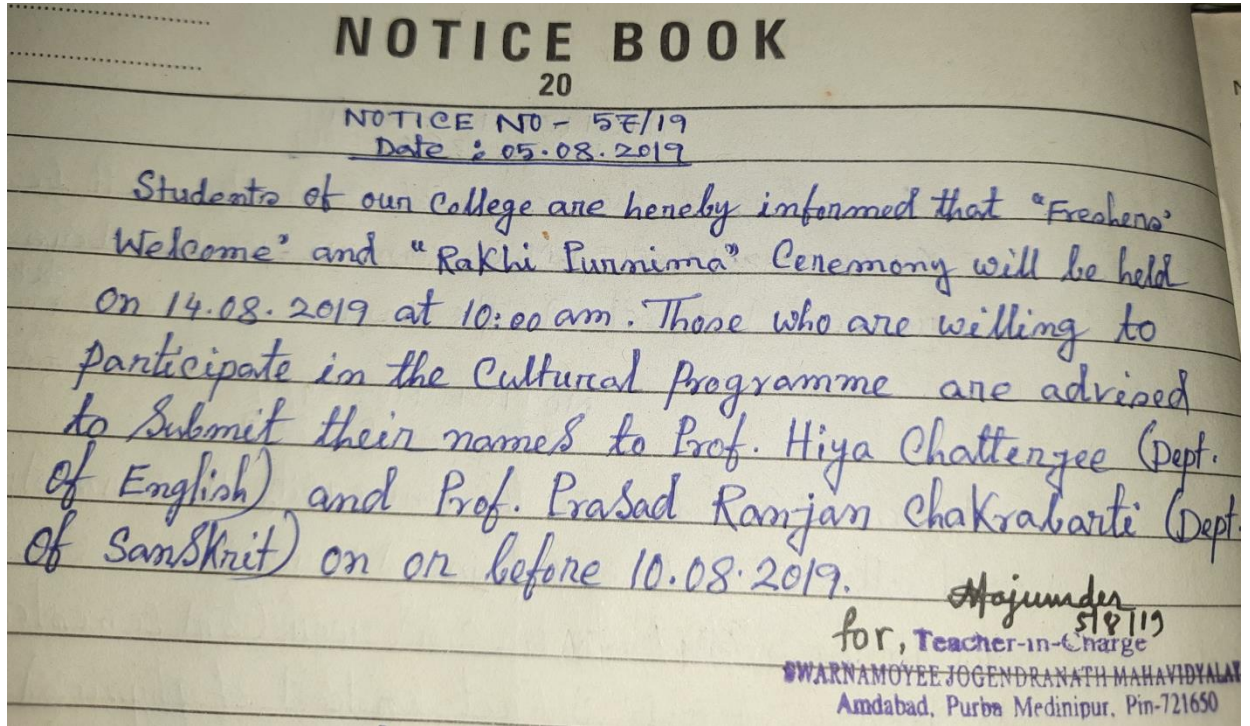 NOTICE BOOK
20
NOTICE NO - 57/19
Date : 05.08.2019
Students of our College are hereby informed that "Freshers'
Welcome" and "Rakhi Purnima" Ceremony will be held
on 14.08.2019 at 10:00 am. Those who are willing to
participate in the Cultural Programme are advised
to Submit their names to Prof. Hiya Chatterjee (Dept.
of English) and Prof. Prasad Ranjan Chakrabarti (Dept.
of Sanskrit) on or before 10.08.2019.
Majumder
5/8/19
for, Teacher-in-Charge
SWARNAMOYEE JOGENDRANATH MAHAVIDYALAY
Amdabad, Purba Medinipur, Pin-721650